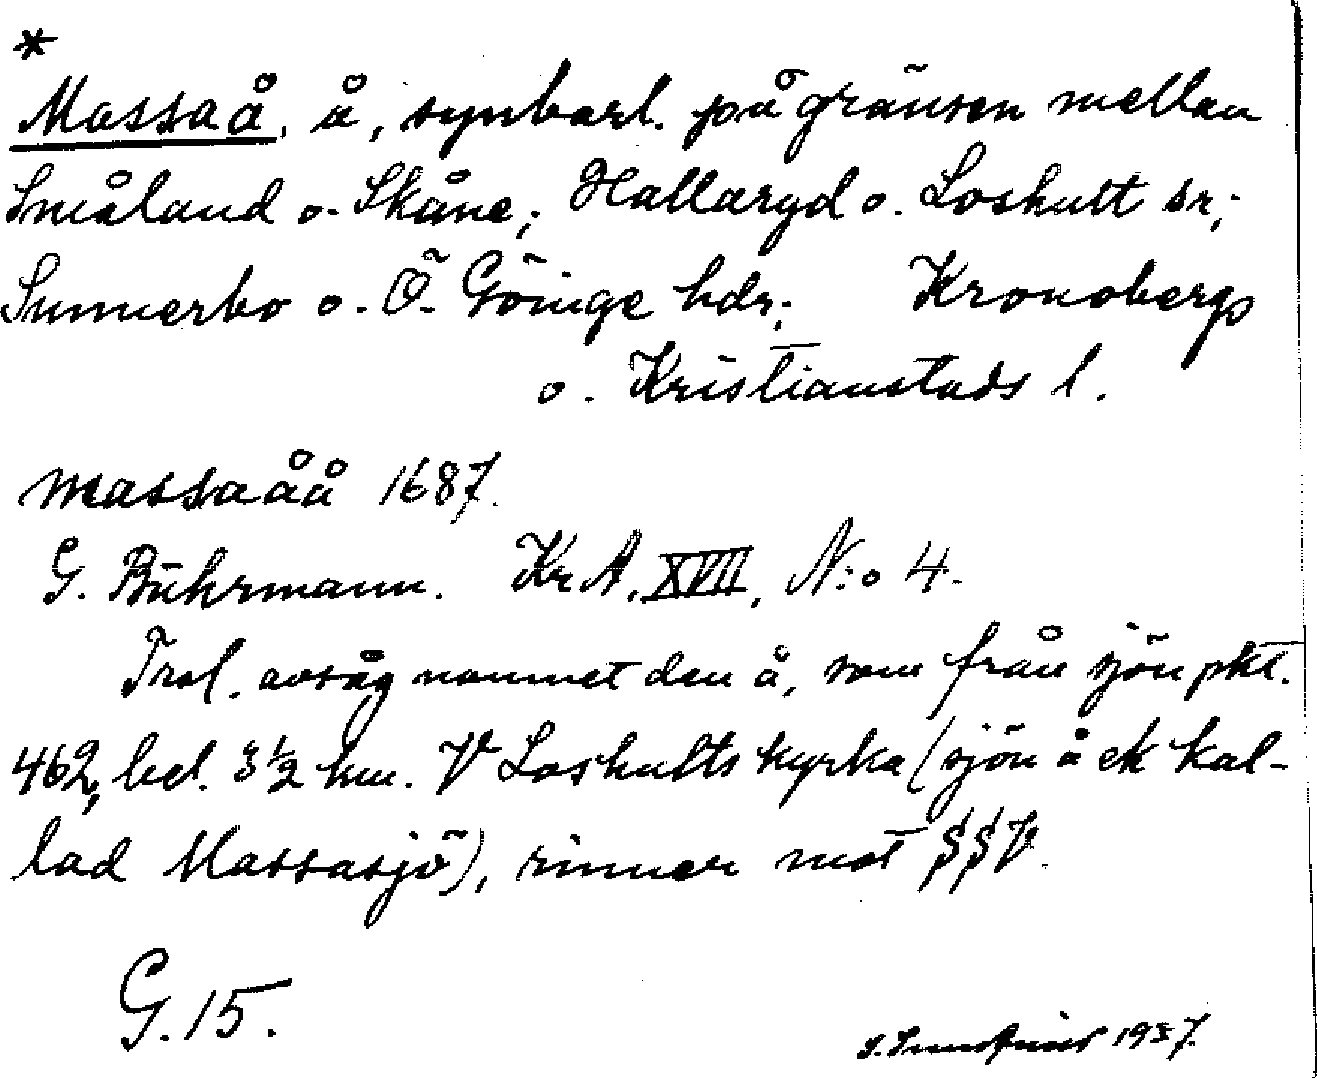 *
Massaå, å, synbarl. på gränsen mellan
Småland o. Skåne; Hallaryd o. Loshult sr;
Sunnerbo o. Ö. Göinge hdr; Kronobergs
o. Kristianstads l.
Massaåå 1687.
G. Bührmann. KrA, XVII, N:o 4.
Trol. avsåg namnet den å, som från sjön pkt.
462, bel. 3½ km. V Loshults kyrka (sjön å ek kal-
lad Massasjö), rinner mot SSV.
G. 15.
1937.